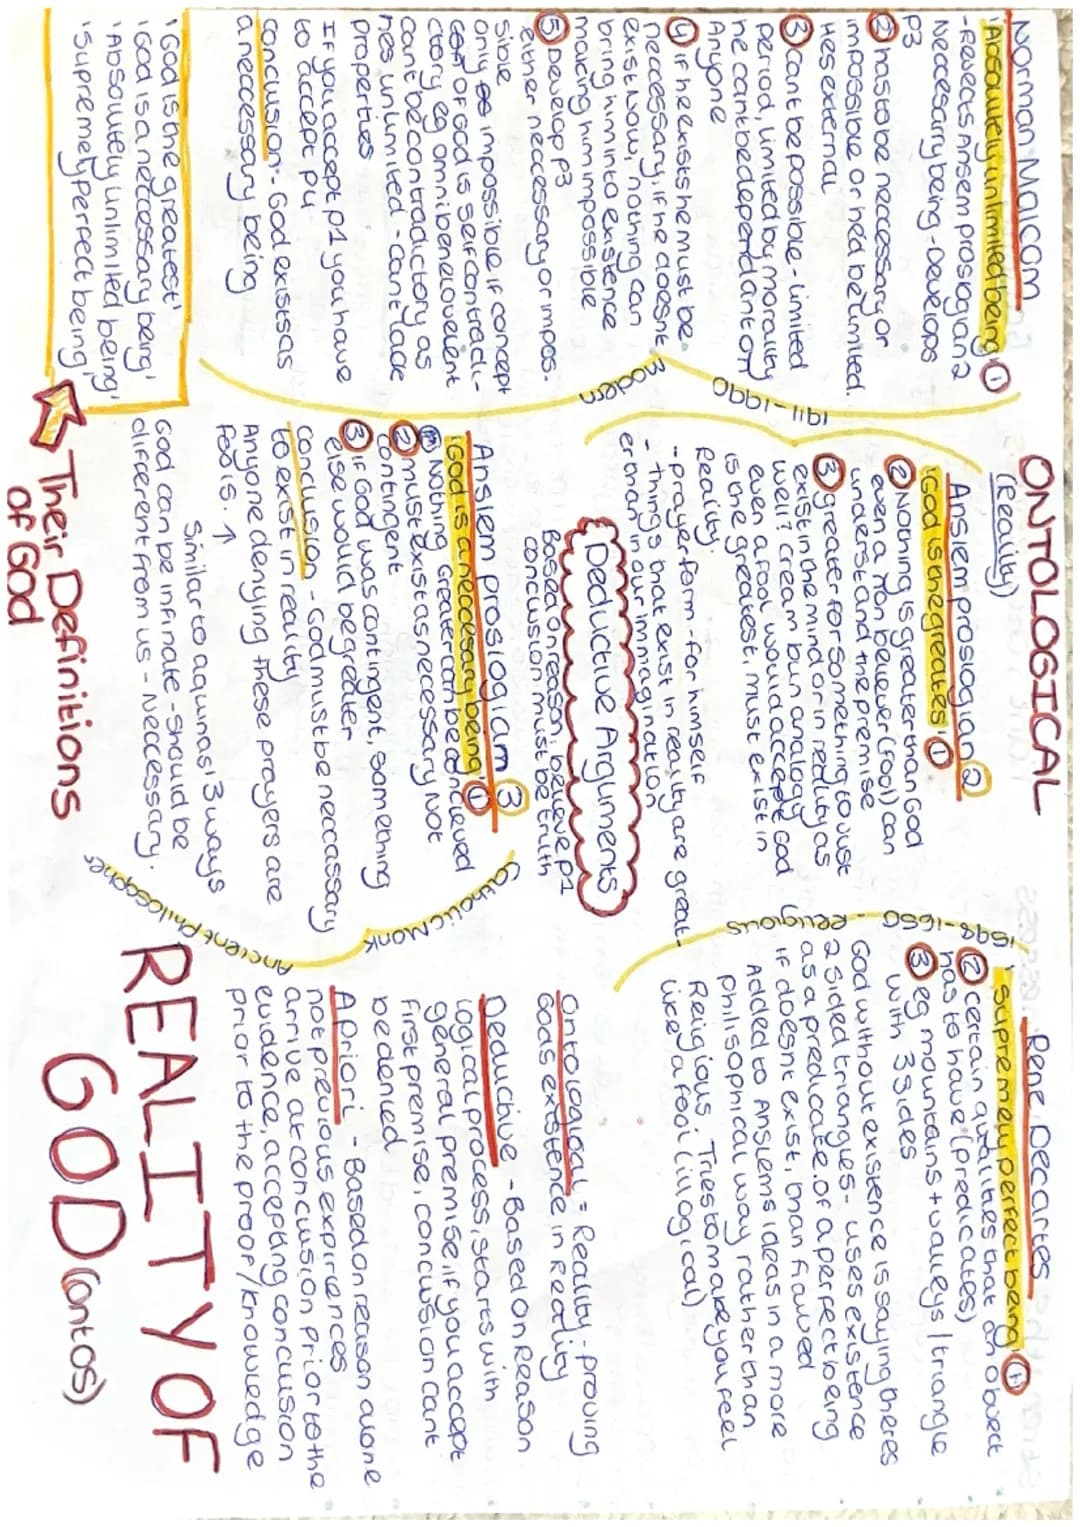 ONTOLOGICAL
(Reality)
Norman Malcom
'Absoulutely unlimited being' 1
- Reveats Ansem proslogian 2
Neccesary being - Develops
P3
2 has to be neccessary or
impossible or he'd be limited.
Hes external
3 Cant be possible - limited
period, limited by morality
he cant be dependant of
Anyone
4 if he exists he must be
neccessary, if he doesnt
exist now, nothing can
bring him into existence
making him impossible
5 Develop p3
either neccessary or impos-
sible
only impossible if concept
of God is self contradi-
ctory eg omnibenelovelent
cant be contradictory as
hes unlimited - cant lack
properties
If you accept p1 you have
to accept p4
conclusion - God exists as
a neccessary being
1911-1990
Modern
Anslem proslogian 2
'God is the greatest' 1
2 Nothing is greater than God
even a non believer (fool) can
understand the premise
3 greater for something to just
exist in the mind or in reality as
well? cream bun analogy
even a fool would accept God
is the greatest, must exist in
Reality.
- prayer form - for himself
- things that exist in reality are great-
er than in our immagination
Deductive Arguments
Based on reason, believe p1
conclusion must be truth
Anslem proslogiam 3
'God is a neccesary being' 1
Nothing greater can be concieved
2 must exist as necessary not
contingent
3 if God was contingent, something
else would be greater
conclusion - God must be neccassary
to exist in reality
Anyone denying these prayers are
fools. ↑
Similar to aquinas' 3 ways
God can be infinate - should be
different from us - Neccessary.
Catholic Monk
Ancient Philosopher
Rene Decartes
'Supremely perfect being' 1
2 certain qualities that an object
has to have (predicates)
3 eg mountains + valleys / triangle
with 3 sides
God without existence is saying theres
2 sided triangles - uses existence
as a predicate of a perfect being
if doesnt exist, than flawed
Added to Anslems ideas in a more
philisophical way rather than
Religious. Tries to make you feel
like a fool (illogical)
1598-1650
Religious
Ontological = Reality - proving
Gods existence in reality
Deductive - Based on Reason
logical process, starts with
general premise if you accept
first premise, conclusion cant
be denied
A priori - Based on reason alone
not previous expiriences
arrive at conclusion prior to the
evidence, accepting conclusion
prior to the proof/knowledge
'God is the greatest'
'God is a neccessary being'
'Absoulutely unlimited being'
'Supremely perfect being'
Their Definitions
of God
REALITY OF
GOD (ontos)